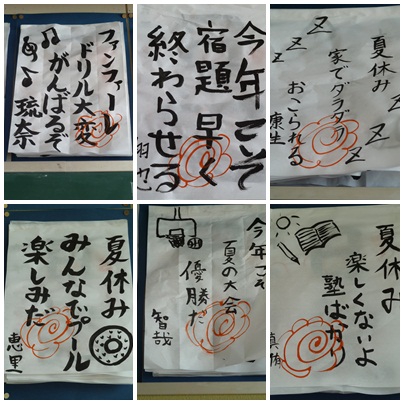 ファンファーレ
ドリル大変
がんばるぞ
琉奈
今年こそ
宿題早く
終わらせる
夏休み
家でダラダラ
おこられる
康生
Z Z Z Z Z Z
夏休み
みんなでプール
楽しみだ
恵里
今年こそ
夏の大会
優勝だ
智哉
夏休み
楽しくないよ
塾ばかり